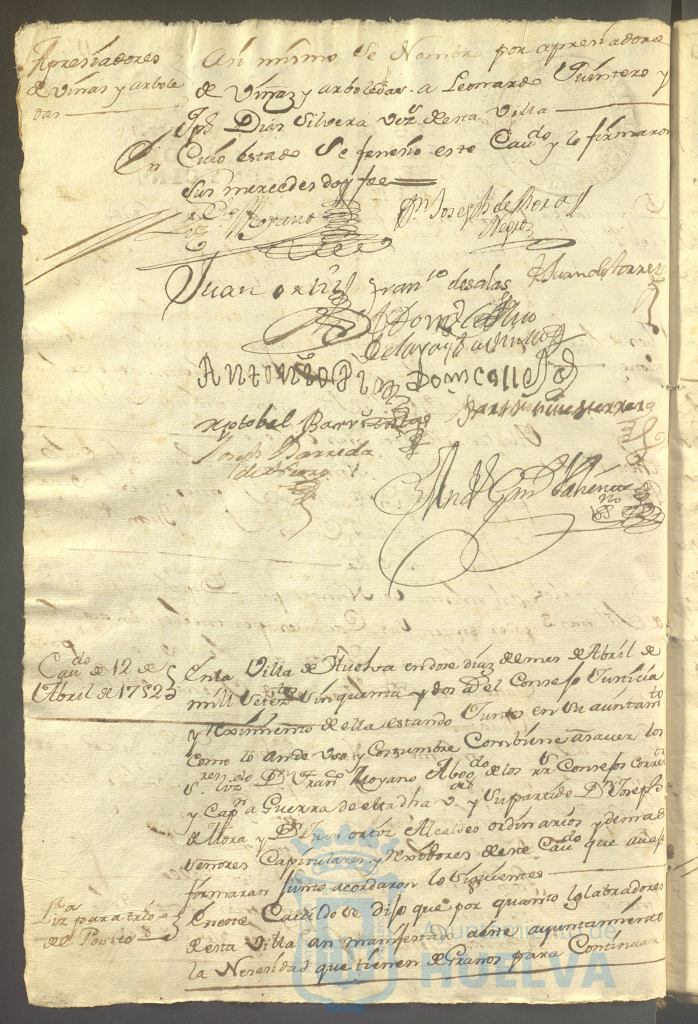 Apresiadores
de Viñas y arbole
das
Asi mismo se Nombro por apresiadores
de Viñas y arboledas a Leonardo Quintero y
Jph Dias Silvera Vezs desta Villa
En Cuio estado se feneso este Cavdo y lo firmaron
sus mercedes doy fee
Moyano
Dn Joseph de Mora
Negro
Juan ortiz
Franco de salas
Juan de torres
Antonio
Domcallejo
xptobal Barrientos
Joseph Barreda
Cavdo de 12 de
Abril de 1752
En la Villa de Huelva en dose dias del mes de Abril de
mill setezos sinquenta y dos as el Consejo Justicia
y Reximiento de ella estando Juntos en su aiuntamto
como lo an de uso y Costumbre Combiene a saver los
Sres Lizdo Dn Franco Moyano Abogdo de los Rs Consejos Correxr
y Capn a Guerra de esta dha Va y su partido Dn Joseph
de Mora y Dn Juan ortiz Alcaldes ordinarios y demas
señores Capitulares y Rexidores deste Cavdo que avajo
firmaran Junto acordaron lo siguiente
Liza para trigo
del Posito
En este Cavildo se dijo que por quanto los labradores
desta Villa an manifestado a este ayuntamiento
la Nesesidad que tienen de Granos para Continuar
Ayuntamiento de
HUELVA